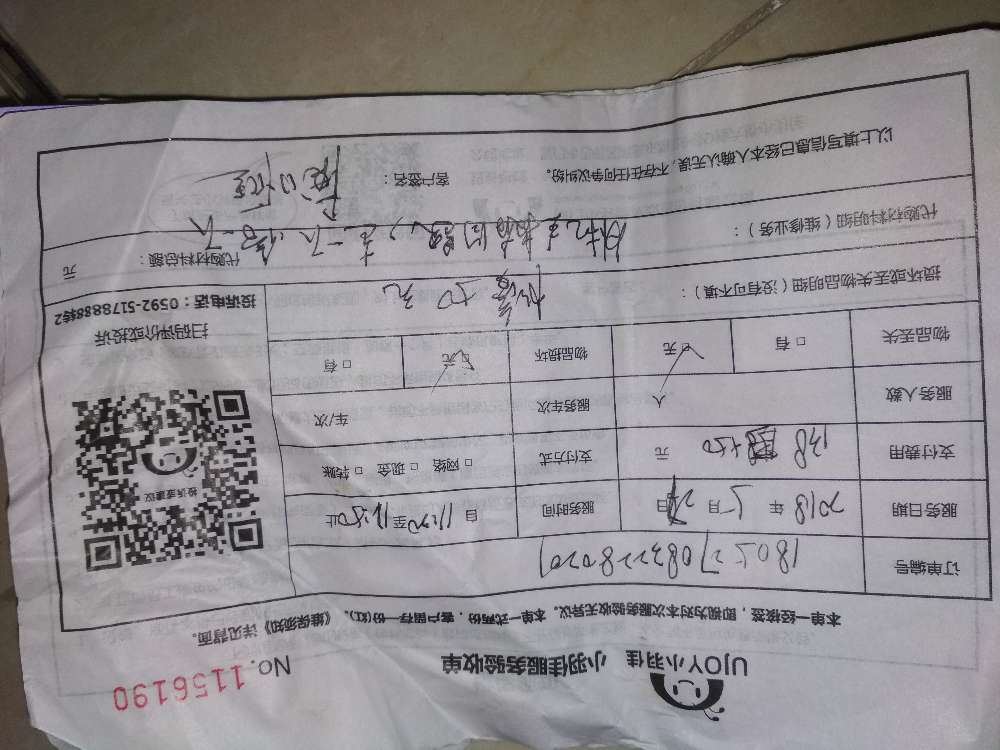 UJOY小羽佳 小羽佳服务验收单 No.1156190
本单一经接签,即视为对本次服务验收无异议。本单一式两份,客户留存一份(红)。《维保须知》详见背面。
订单编号
服务日期 2018 年 5 月 日 服务时间 自 至 止
支付费用 138 +50 元 支付方式 □ 网络 □ 现金 □ 转账
服务人数 人 服务车次 车/次
物品丢失 □ 有 □ 无 物品损坏 □ 无 □ 有
投诉或建议
扫码评价或投诉
投诉电话:0592-5178888转2
损坏或丢失物品明细(没有可不填): 50元
代购材料明细(维修业务): 代购材料总额: 元
以上填写信息已经本人确认无误,不存在任何争议纠纷。 客户签名: